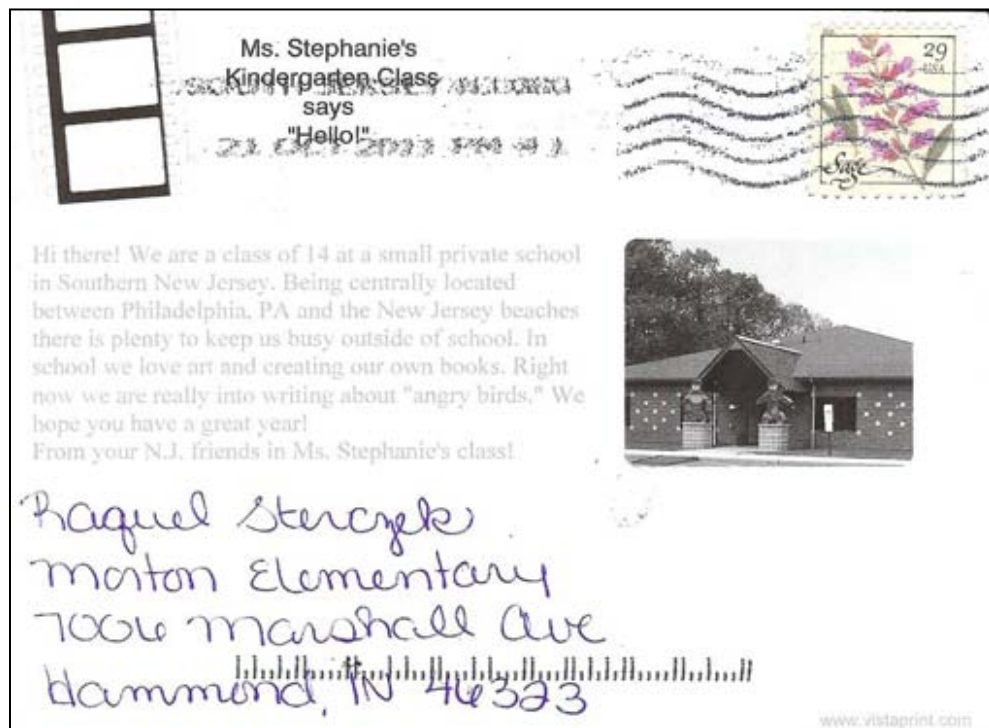 Ms. Stephanie's
Kindergarten Class
says
"Hello!"
SOUTH JERSEY NJ 080
21 OCT 2011 PM 1
29
USA
Sage
Hi there! We are a class of 14 at a small private school
in Southern New Jersey. Being centrally located
between Philadelphia, PA and the New Jersey beaches
there is plenty to keep us busy outside of school. In
school we love art and creating our own books. Right
now we are really into writing about "angry birds." We
hope you have a great year!
From your N.J. friends in Ms. Stephanie's class!
Raquel Sterczek
Morton Elementary
7006 Marshall Ave
Hammond, IN 46323
www.vistaprint.com